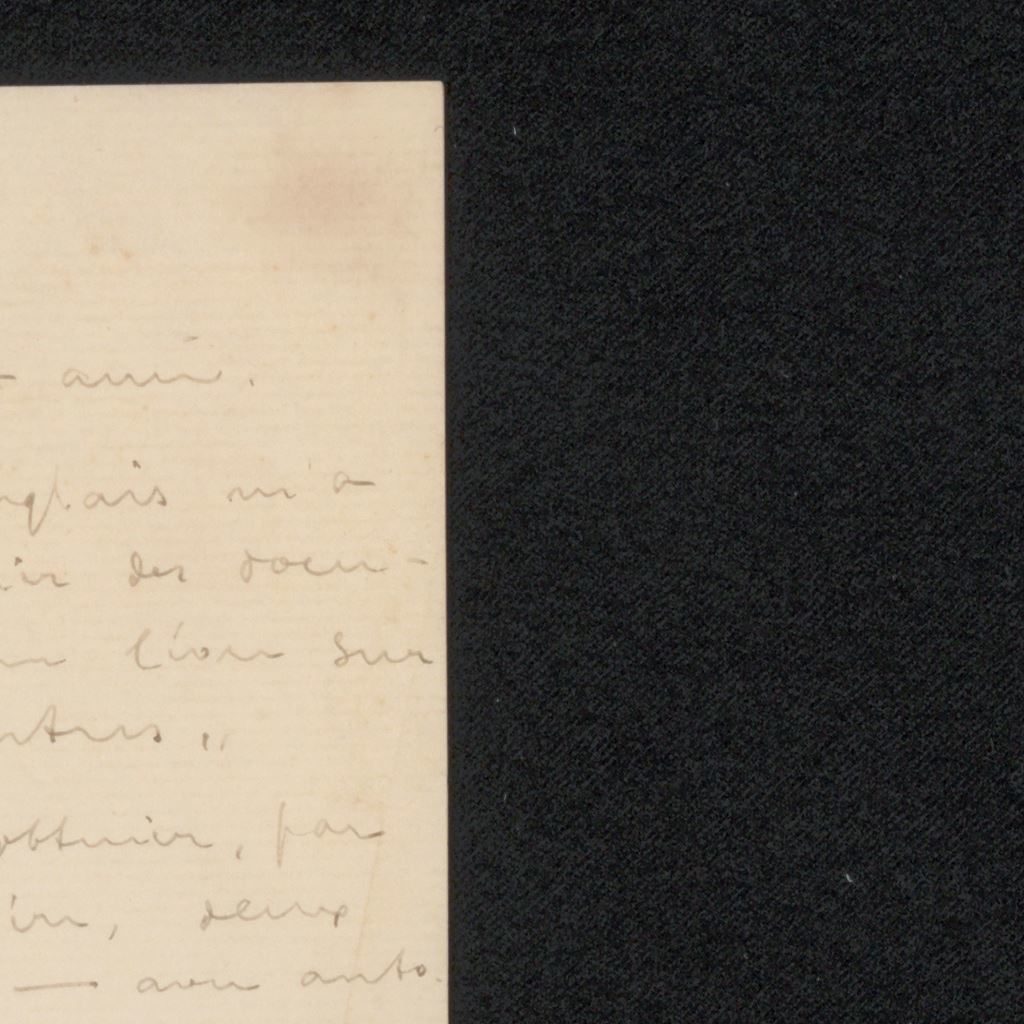 ami.
nglais m'a
ir des docu-
lion sur
ntres„
obtenir, par
ire, deux
— avec auto.